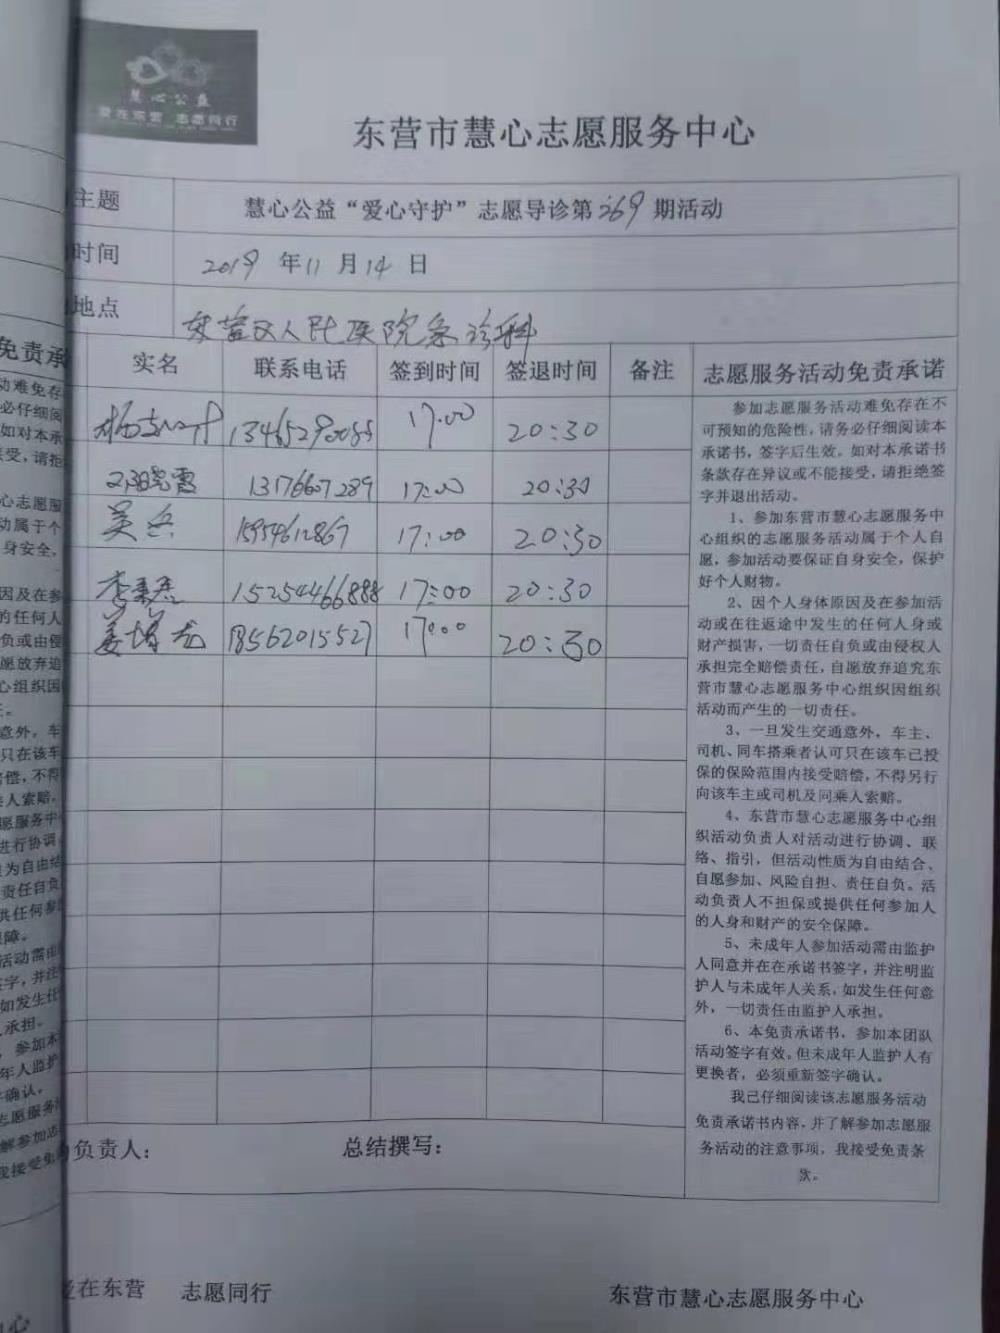 慧心公益
爱在东营 志愿同行
东营市慧心志愿服务中心
主题 慧心公益“爱心守护”志愿导诊第269期活动
时间 2019年11月14日
地点 东营区人民医院急诊科
实名 联系电话 签到时间 签退时间 备注 志愿服务活动免责承诺
17:00 20:30
13176607289 17:00 20:30
吴兵 15954612867 17:00 20:30
李 15254466888 17:00 20:30
姜 18562015527 17:00 20:30
参加志愿服务活动难免存在不
可预知的危险性，请务必仔细阅读本
承诺书，签字后生效。如对本承诺书
条款存在异议或不能接受，请拒绝签
字并退出活动。
1、参加东营市慧心志愿服务中
心组织的志愿服务活动属于个人自
愿，参加活动要保证自身安全，保护
好个人财物。
2、因个人身体原因及在参加活
动或在往返途中发生的任何人身或
财产损害，一切责任自负或由侵权人
承担完全赔偿责任，自愿放弃追究东
营市慧心志愿服务中心组织因组织
活动而产生的一切责任。
3、一旦发生交通意外，车主、
司机、同车搭乘者认可只在该车已投
保的保险范围内接受赔偿，不得另行
向该车主或司机及同乘人索赔。
4、东营市慧心志愿服务中心组
织活动负责人对活动进行协调、联
络、指引，但活动性质为自由结合、
自愿参加、风险自担、责任自负。活
动负责人不担保或提供任何参加人
的人身和财产的安全保障。
5、未成年人参加活动需由监护
人同意并在在承诺书签字，并注明监
护人与未成年人关系，如发生任何意
外，一切责任由监护人承担。
6、本免责承诺书，参加本团队
活动签字有效。但未成年人监护人有
更换者，必须重新签字确认。
我已仔细阅读该志愿服务活动
免责承诺书内容，并了解参加志愿服
务活动的注意事项，我接受免责条
款。
负责人： 总结撰写：
爱在东营 志愿同行 东营市慧心志愿服务中心